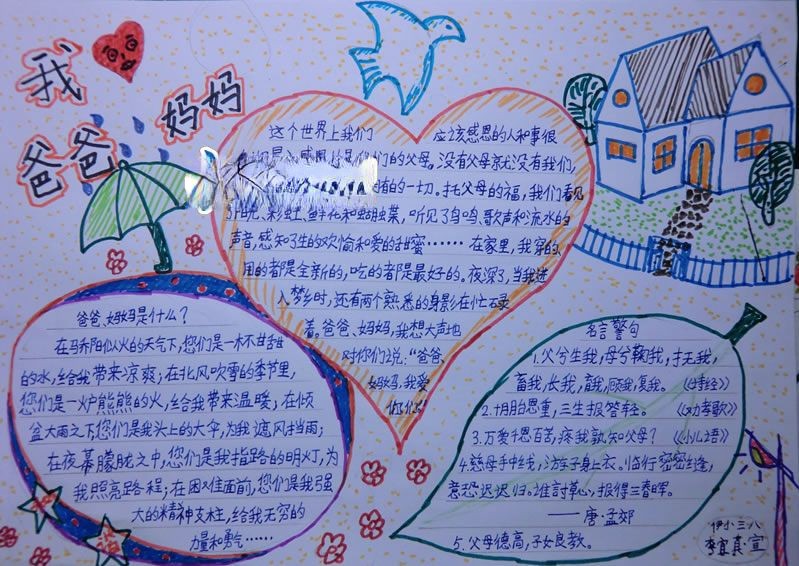 我
爸爸
妈妈
这个世界上我们 应该感恩的人和事很
们的父母。没有父母就没有我们,
有的一切。托父母的福,我们看见
阳光、彩虹、鲜花和蝴蝶,听见了鸟鸣、歌声和流水的
声音,感知了生的欢愉和爱的甜蜜……在家里,我穿的、
用的都是全新的,吃的都是最好的。夜深了,当我进
入梦乡时,还有两个熟悉的身影在忙碌
着。爸爸、妈妈,我想大声地
对你们说:“爸爸、
妈妈,我爱
你们!”
爸爸、妈妈是什么?
在骄阳似火的天气下,您们是一杯甘甜
的水,给我带来凉爽;在北风吹雪的季节里,
您们是一炉熊熊的火,给我带来温暖;在倾
盆大雨之下,您们是我头上的大伞,为我遮风挡雨;
在夜幕朦胧之中,您们是我指路的明灯,为
我照亮路程;在困难面前,您们是我强
大的精神支柱,给我无穷的
力量和勇气……
名言警句
1.父兮生我,母兮鞠我,抚我,
畜我,长我,育我,顾我,复我。《诗经》
2.十月胎恩重,三生报答轻。《劝孝歌》
3.万爱千恩百苦,疼我孰知父母?《小儿语》
4.慈母手中线,游子身上衣。临行密密缝,
意恐迟迟归。谁
寸草心,报得三春晖。
——唐·孟郊
5.父母德高,子女良教。
伊小三八
李宜真·宣